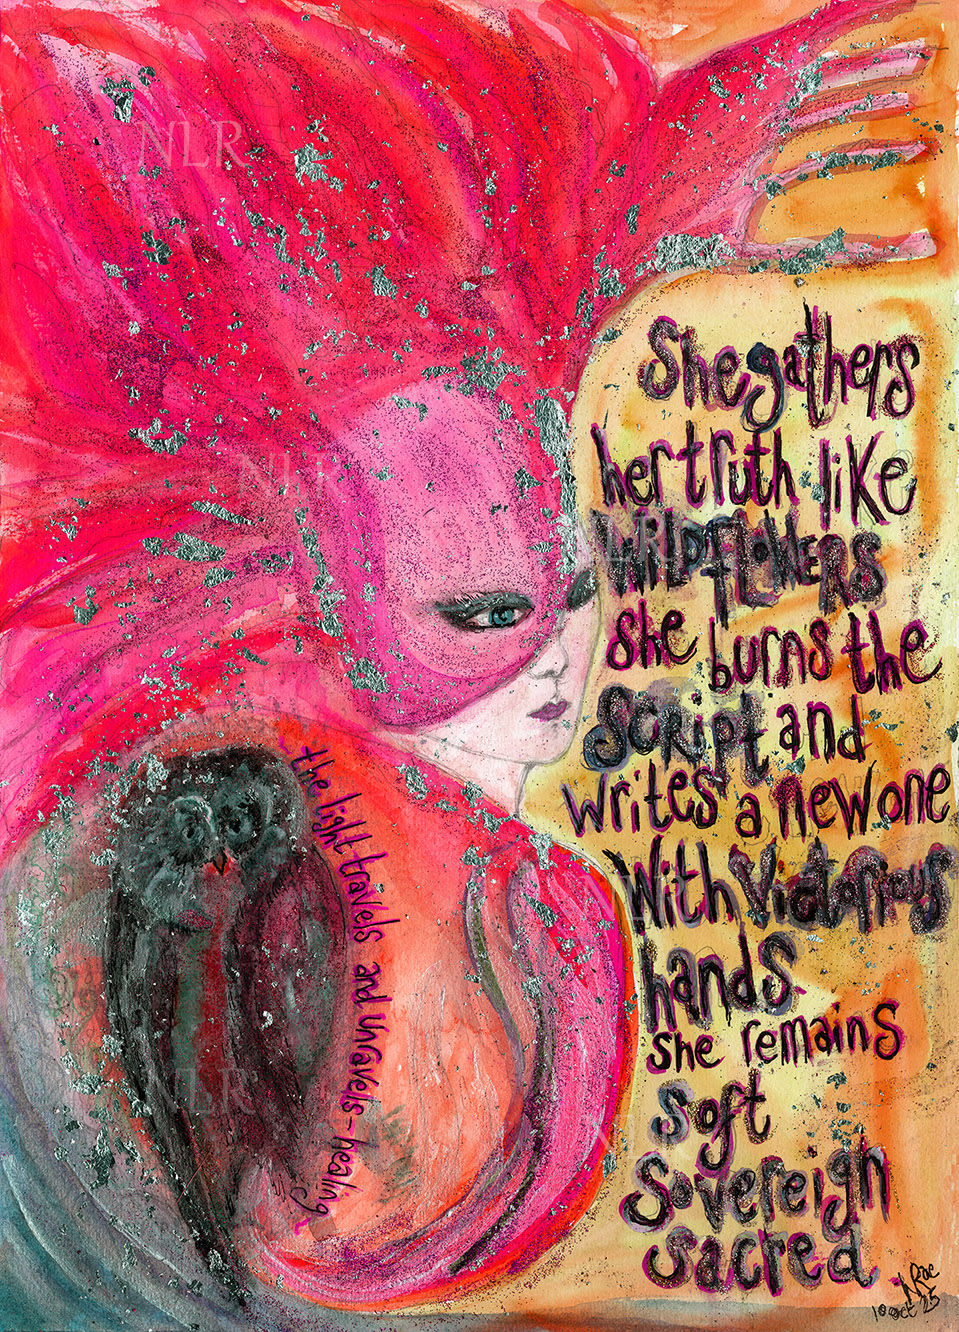 She gathers
her truth like
WILDFLOWERS
she burns the
SCRIPT and
writes a new one
With Victorious
hands.
she remains
soft
Sovereign
sacred
~ the light travels and unravels - healing ~
NLR
NLR
NLR
NLR
NLR
NLR
N Rae
10 oct 25